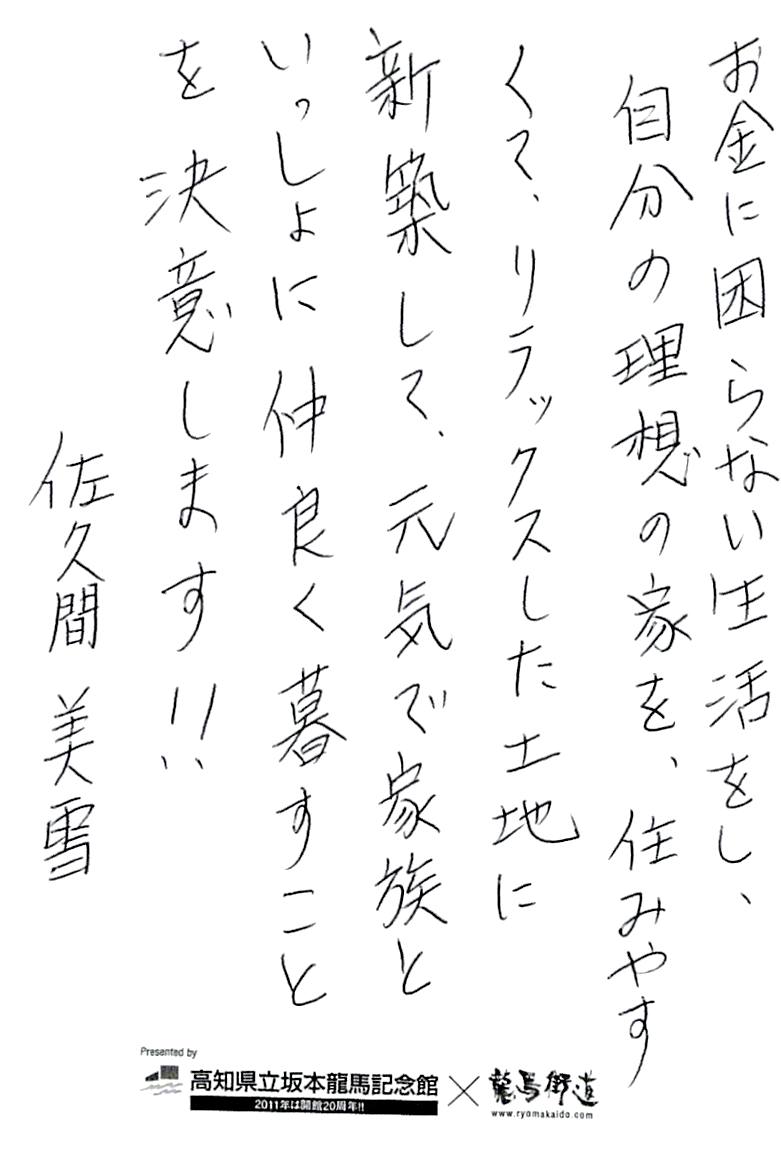 お金に困らない生活をし、
自分の理想の家を、住みやす
くて、リラックスした土地に
新築して、元気で家族と
いっしょに仲良く暮すこと
を決意します!!
佐久間 美雪
Presented by
高知県立坂本龍馬記念館 × 龍馬街道
2011年は開館20周年!!
www.ryomakaido.com